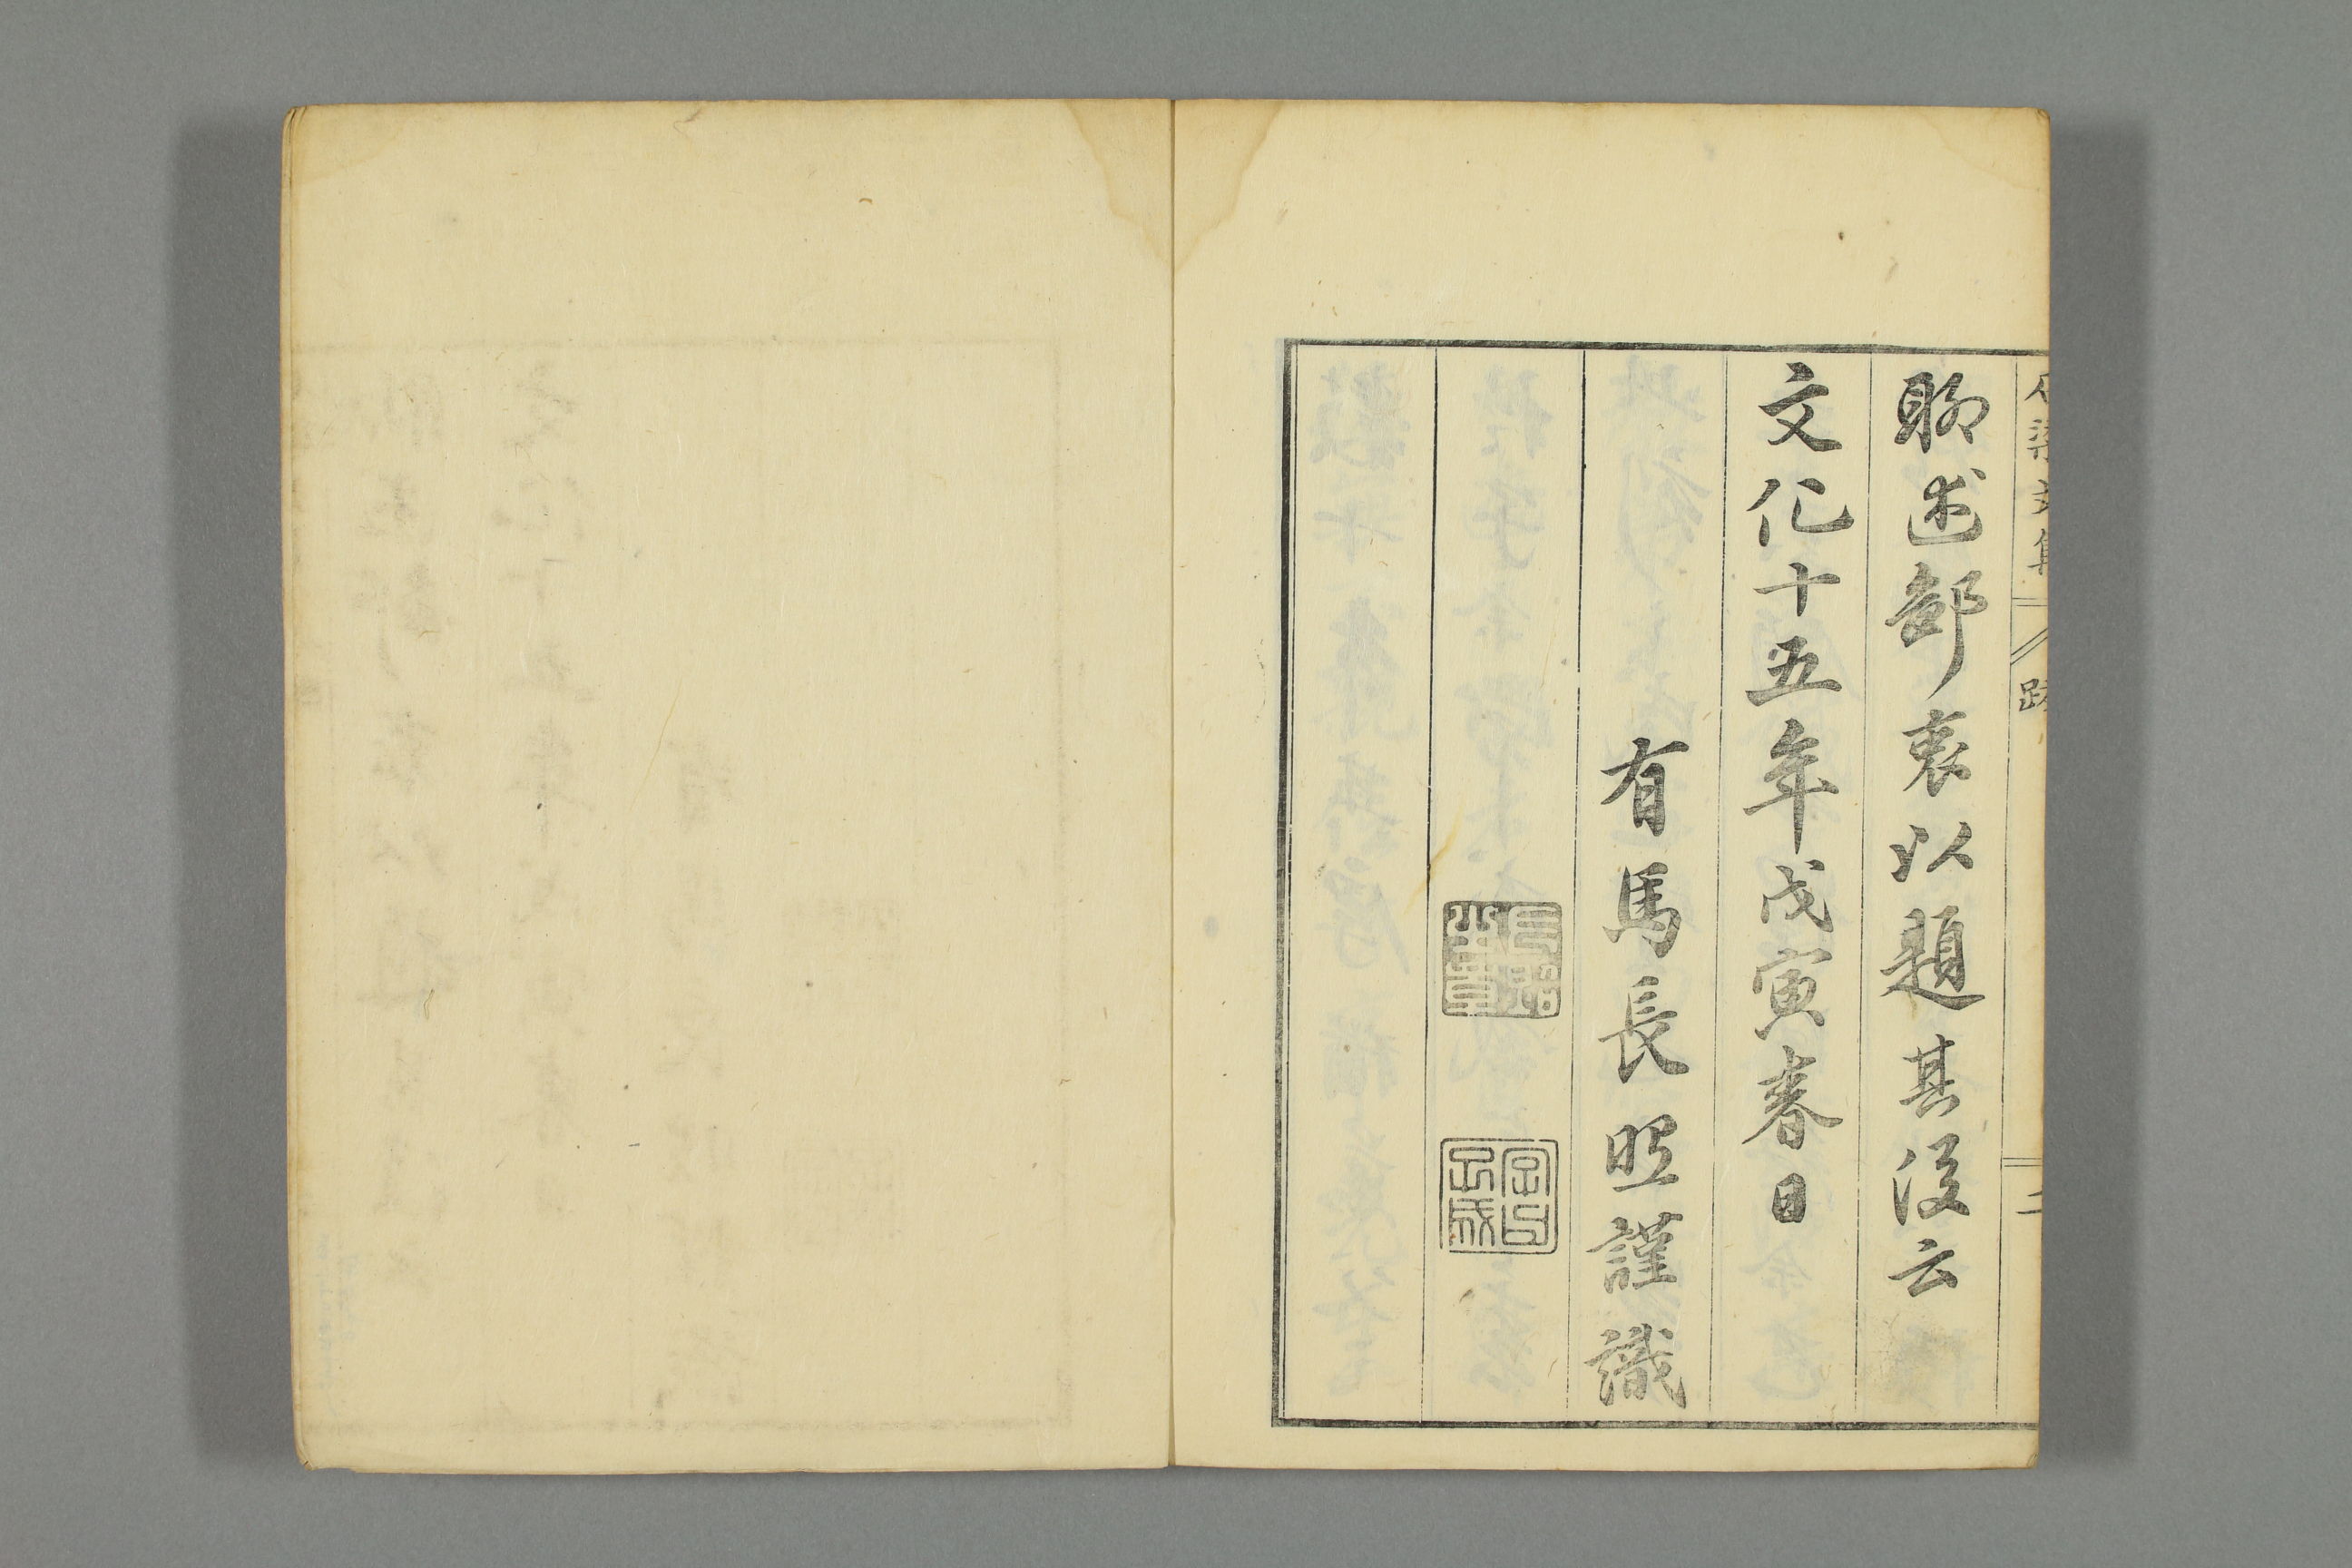 聊述鄙衷以題其後云
文化十五年戊寅春日
有馬長照謹識
文集
跋
二